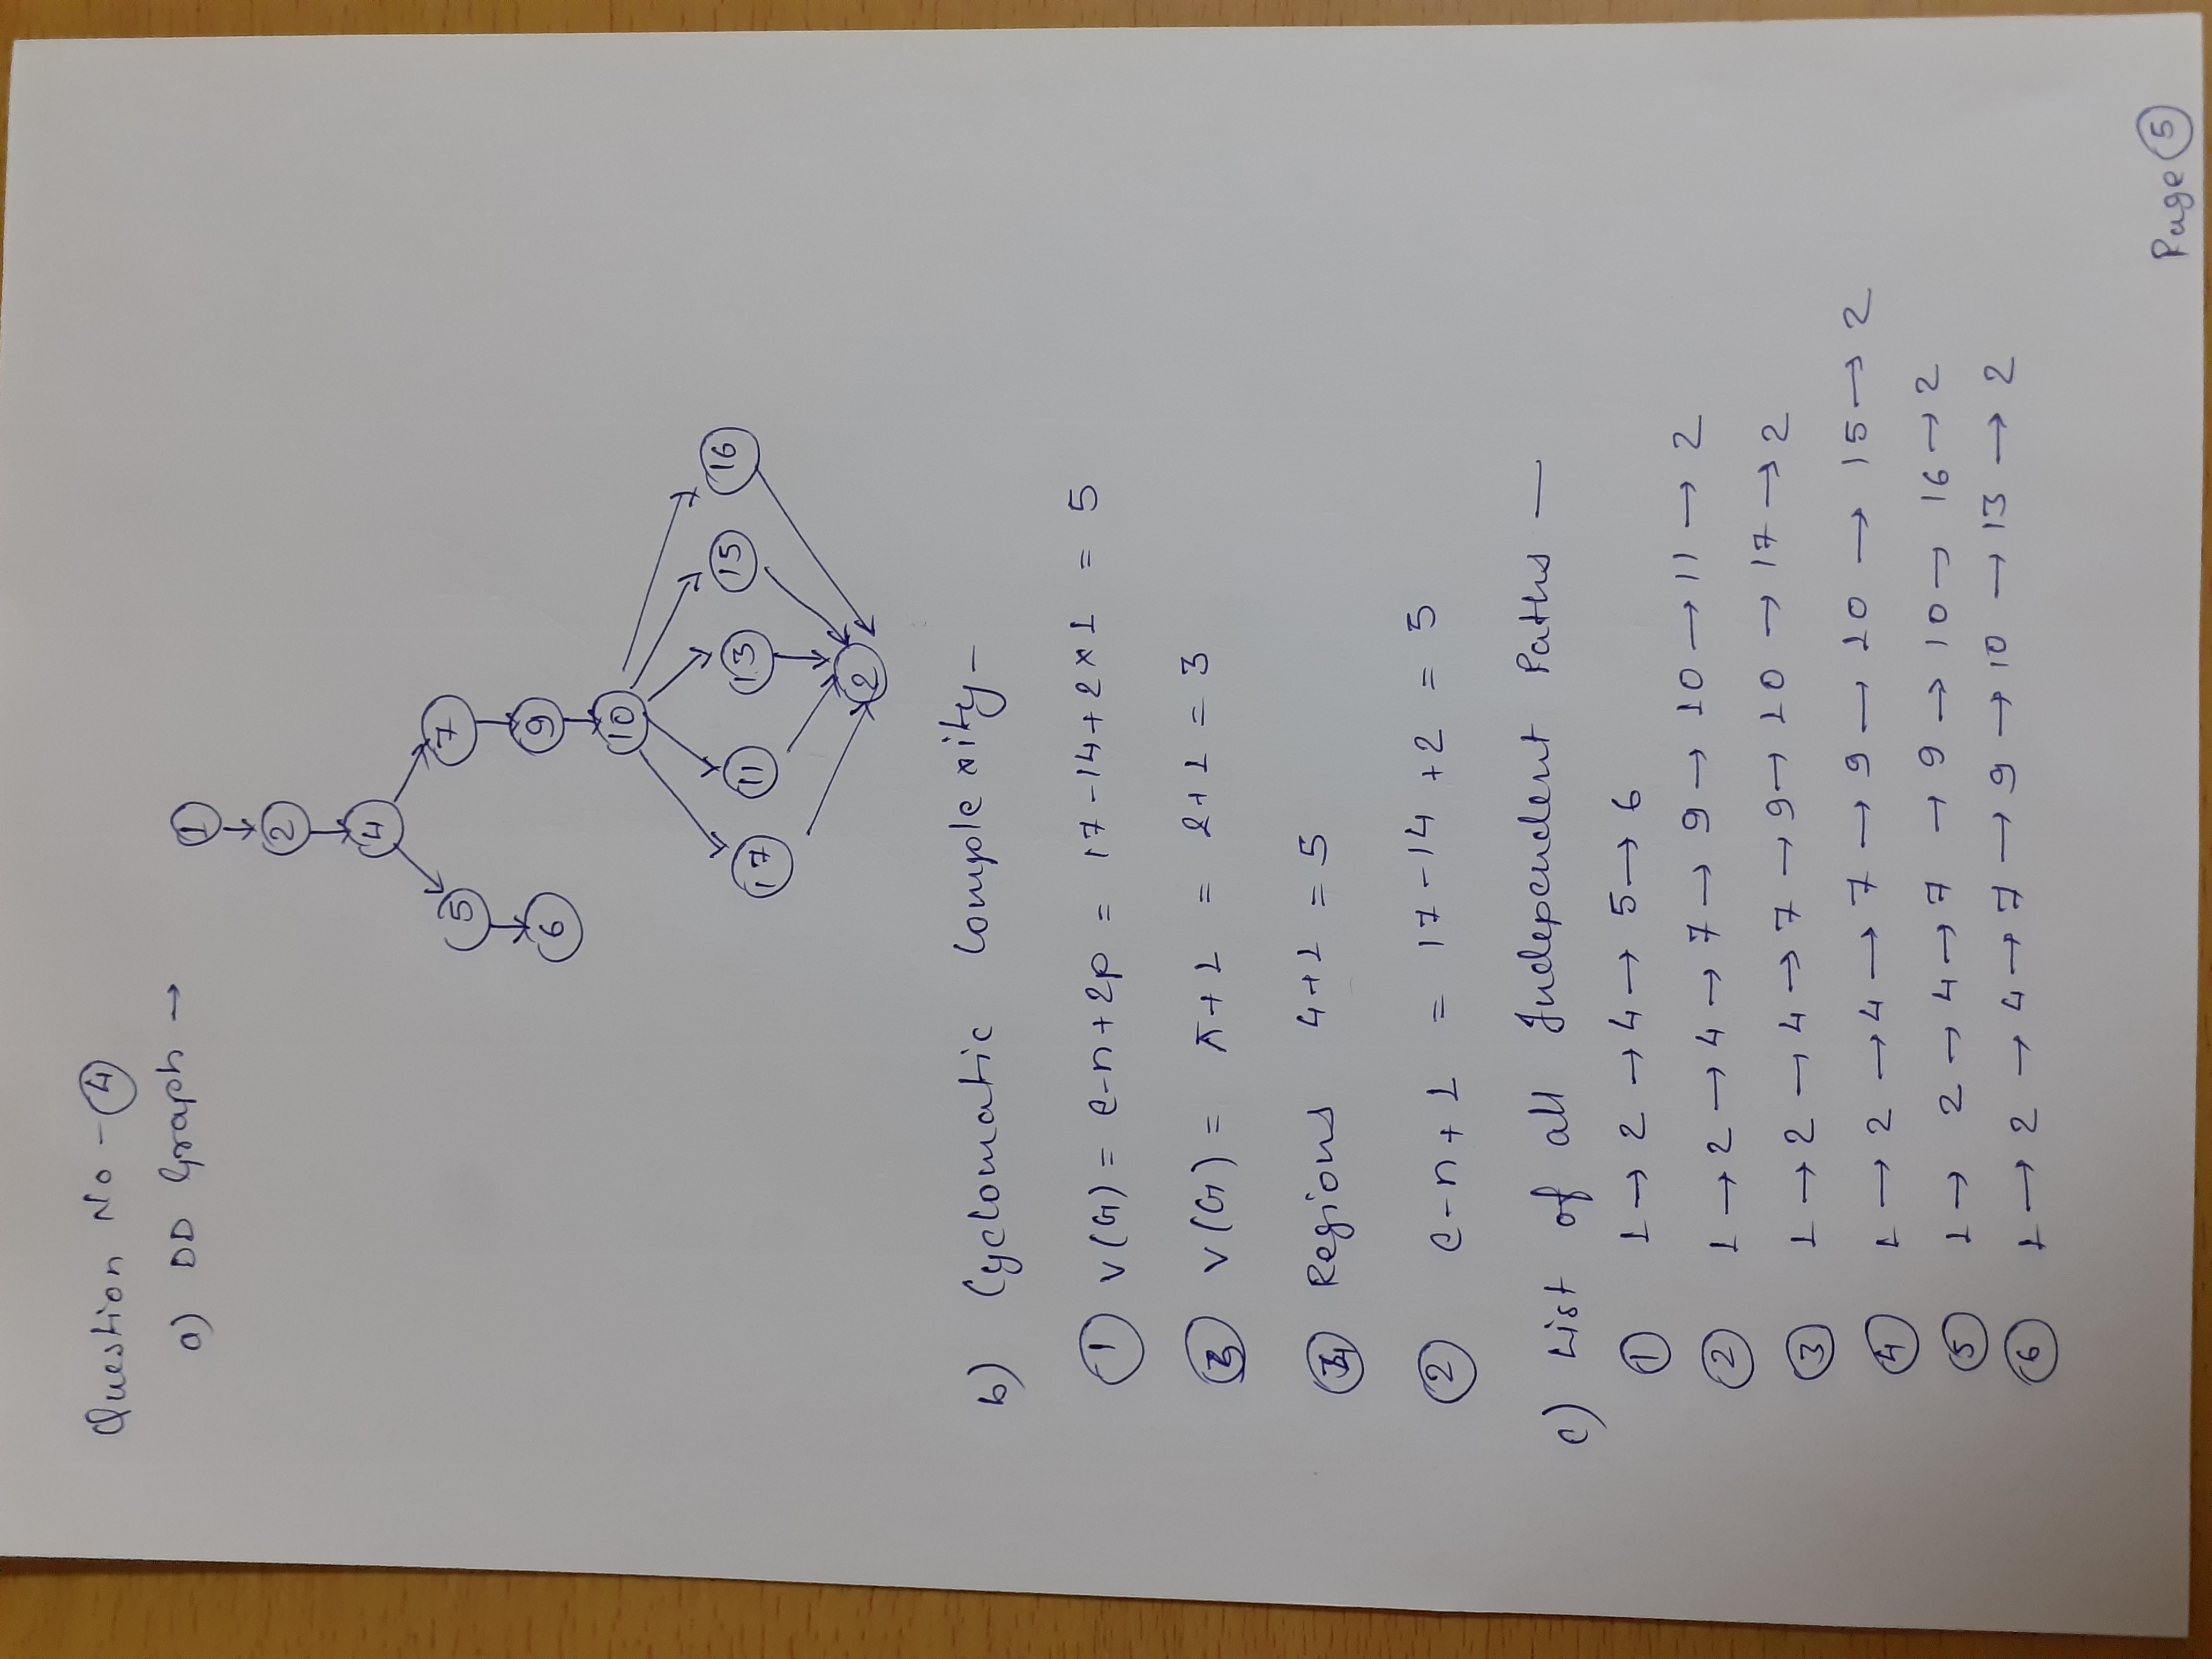 Question No - 4
a) DD Graph →
1
2
4
5
7
6
9
10
17
11
13
15
16
2
b) Cyclomatic Complexity -
1 V(G) = e-n+2p = 17-14+2×1 = 5
3 V(G) = π+1 = 2+1 = 3
4 Regions 4+1 = 5
2 e-n+1 = 17-14+2 = 5
c) List of all Independent Paths —
1 1→2→4→5→6
2 1→2→4→7→9→10→11→2
3 1→2→4→7→9→10→17→2
4 1→2→4→7→9→10→15→2
5 1→2→4→7→9→10→16→2
6 1→2→4→7→9→10→13→2
Page 5